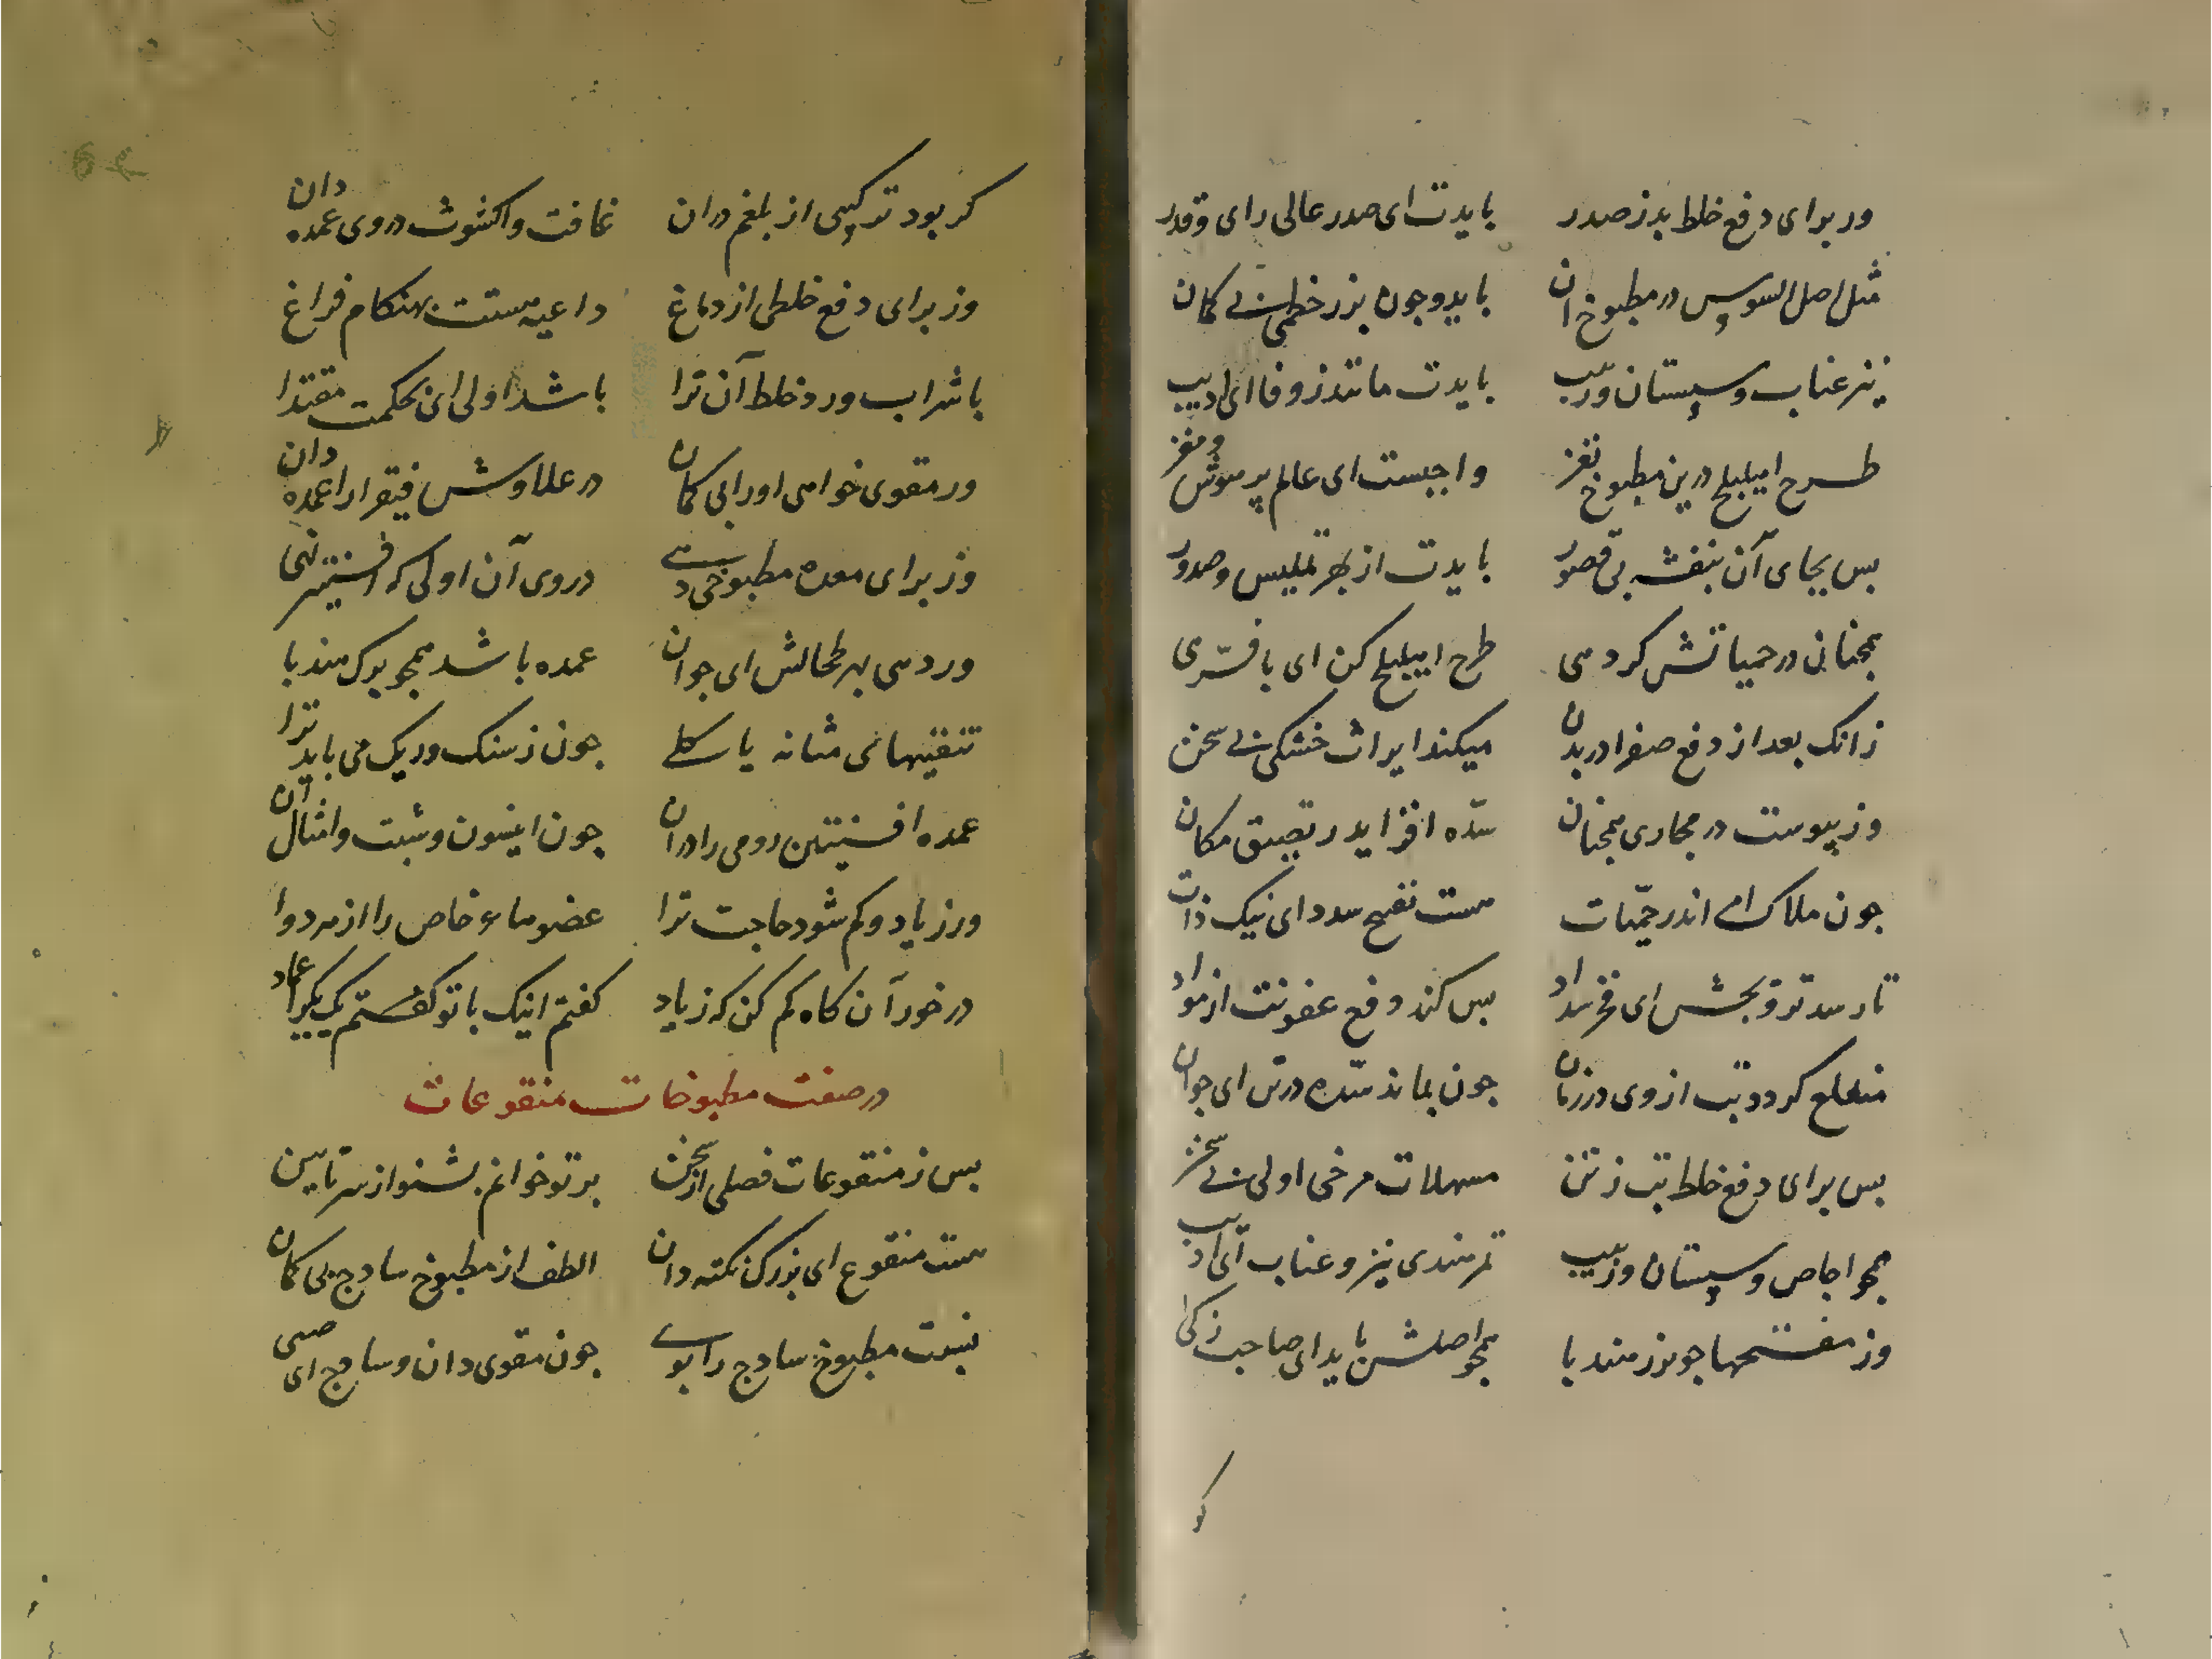 ور برای دفع خلط بد ز صدر بایدت ای صدر عالی رای و قدر
مثل اصل السوس در مطبوخ ان باید و جون بزر خطمی بی کمان
نیز عناب و سپستان و زبیب بایدت مانند زوفا ای ادیب
طرح اهلیلج درین مطبوخ نغز واجبست ای عالم پر هوش و مغز
بس بجای آن بنفشه بی قصور بایدت از بهر تلیین و صدور
همجنانی در حمیاتش کر دهی طرح اهلیلج کن ای با فرهی
زانک بعد از دفع صفرا در بدن میکند ایراث خشکی بی سخن
وز یبوست در مجاری همجنان سدّه افزاید ز تضییق مکان
جون ملاک امر اندر حمّیات هست تفتیح سدد ای نیک ذات
تا رسد ترویحش ای فرخ نهاد بس کند دفع عفونت از مواد
منقلع کردد تب از وی در زمان جون بماند سدّه در تن ای جوان
بس برای دفع خلط تب ز تن مسهلات مرخی اولی بی سخن
همجو اجاص و سپستان و زبیب تمر هندی نیز و عناب ای ادیب
وز مفتحها جو بزر هندبا همجو اصلش باید ای صاحب ذکا
کر
کر بود ترکیبی از بلغم دران غافت و اکشوث در وی عمده دان
وز برای دفع خلطی از دماغ داعیه هستت بهنکام فراغ
با شراب ورد خلط آن ترا باشد اولی ای بحکمت مقتدا
ور مقوی خواهی او را بی کمان در علاوش فیقرا را عمده دان
وز برای معده مطبوخی دهی در وی آن اولی که افسنتین نهی
ور دهی بهر طحالش ای جوان عمده باشد همجو برک هندبا
تنقیتهای مثانه یا کلی جون ز سنک و ریک می باید ترا
عمده افسنتین رومی را دران جون انیسون و شبت و امثال آن
ور زیاد و کم شود حاجت ترا عضوهاء خاص را از هر دوا
در خور آن کاه کم کن که زیاد کفتم اینک با تو کفتم یک بیک
در صفت مطبوخات منقوعات
بس ز منقوعات فصلی از سخن بر تو خوانم بشنو از سر تا ببن
هست منقوع ای بزرک نکته دان الطف از مطبوخ سادج بی کمان
نسبت مطبوخ سادج را بوی جون مقوی دان و سادج ای